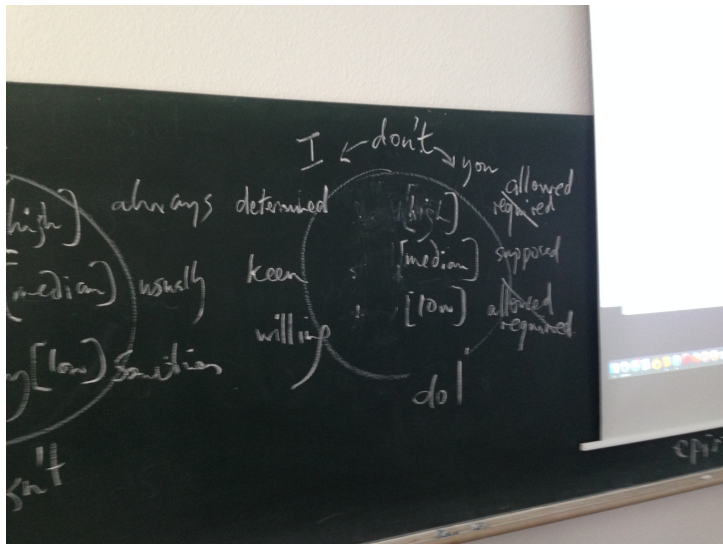 I ← don't → you
high] always determined [high] allowed required
[median] usually keen [median] supposed
[low] sometimes willing [low] allowed required
do!
sn't